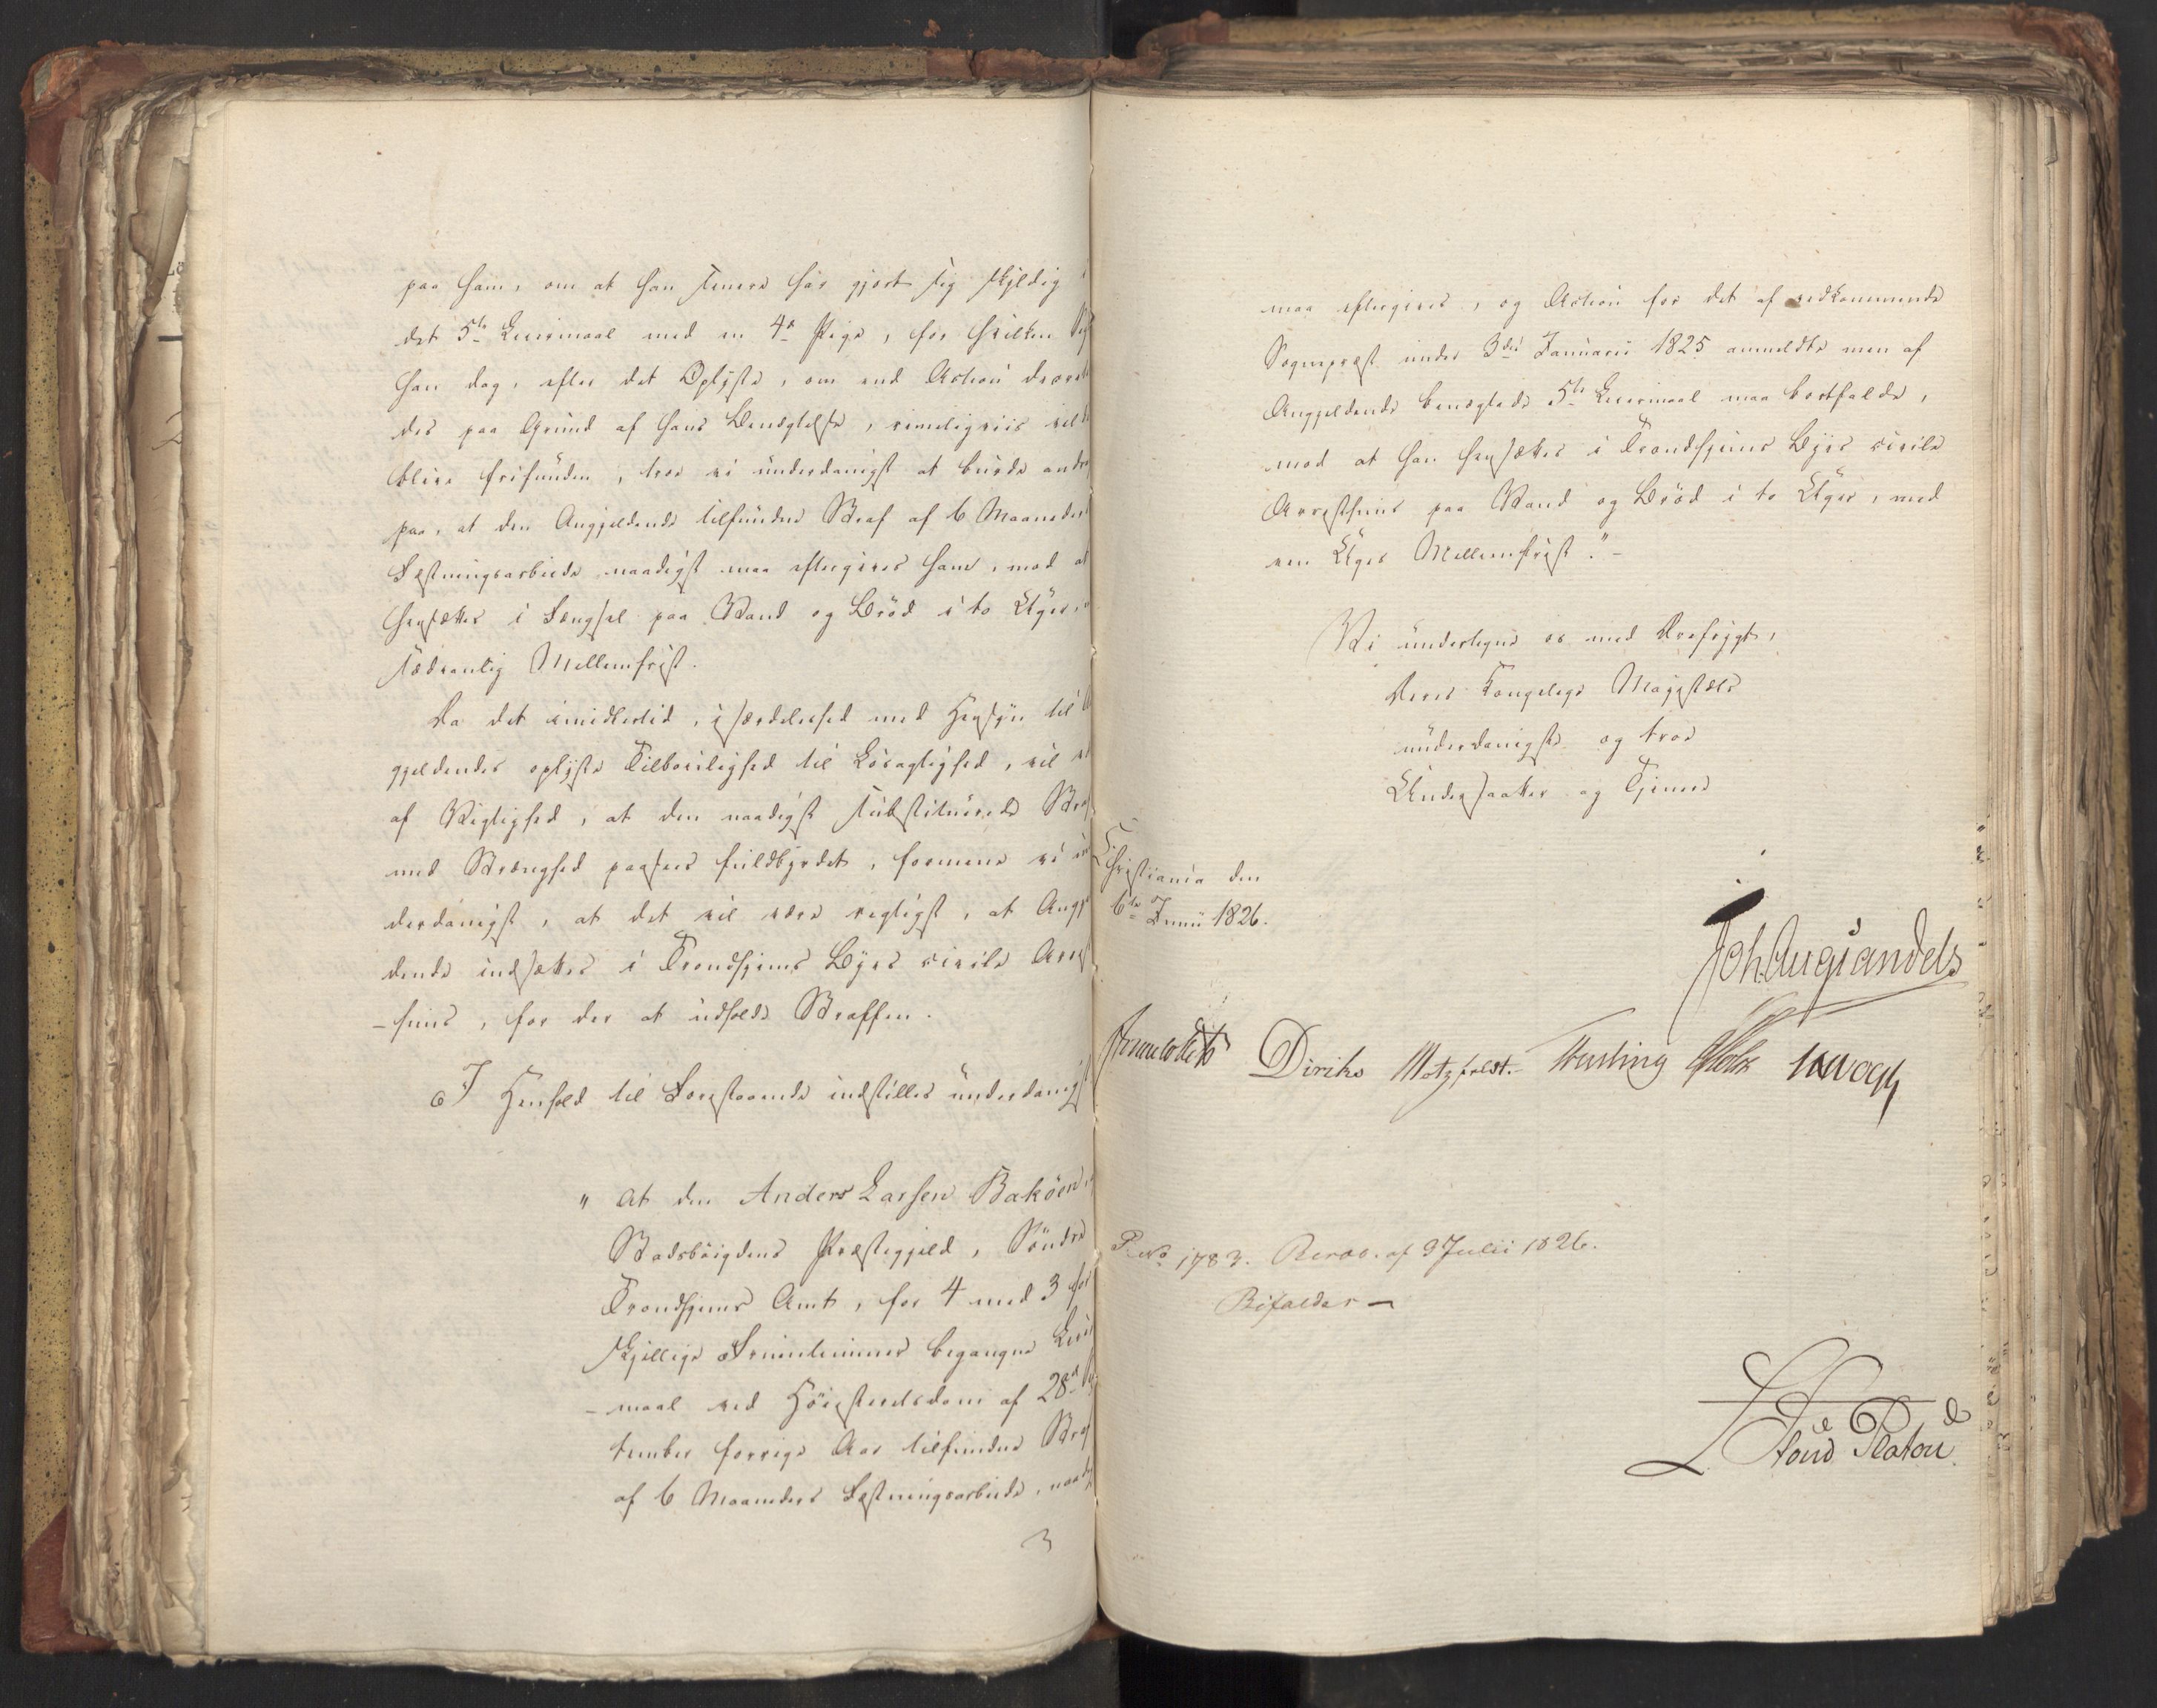 paa ham, om at han senere har gjort sig skyldig i
det 5te Leiermaal med en 4de Pige, for hvilken
han dog, efter det Oplyste, om end Action
des paa Grund af hans Benægtelse, rimeligviis vil
blive frifunden, troe vi underdanigst at burde
paa, at den Angjeldende tilfundne Straf af 6 Maaneders
Fæstningsarbeide naadigst maa eftergives ham, mod at
hensættes i Fængsel paa Vand og Brød i to Uger,
sædvanlig Mellemfrist.
Da det imidlertid, især­deleshed med Hensyn til
gjeldendes oplyste Tilbøielighed til Løsagtighed, vil
af Vigtighed, at den naadigst substituerede Straf
med Strænghed paasees fuldbyrdet, formene vi
derdanigst, at det vil være rigtigst, at Angj
dende indsættes i Trondhjems Byes civile Arrest
-huus, for der at udholde Straffen.
I Henhold til Forestaaende indstilles underdanigst
" at den Anders Larsen Bakøen
Stadsbøigdens Præstegjeld, Søndre
Trondhjems Amt, for 4 med 3 for
skjellige Fruentimmer begangne Leier
-maal ved Høiesteretsdom af 28de
tember forrige Aar tilfundne Straf
af 6 Maaneders Fæstningsarbeide, naadigst
3
maa eftergives, og Action for det af vedkommende
Sognepræst under 3die Januarii 1825 anmeldte men af
Angjeldende benægtede 5te Leiermaal maa bortfalde,
mod at han hensættes i Trondhjems Byes civile
Arresthuus paa Vand og Brød i to Uger, med
een Uges Mellemfrist."-
Vi undertegne os med Ærefrygt,
Deres Kongelige Majestæts
underdanigste og troe
Undersaatter og Tjenere
Christiania den
6te Junii 1826.
Joh. Aug Sandels
Diriks Motzfeldt.
P. No 1783. Resol. af 9 Julii 1826.
Bifaldes —